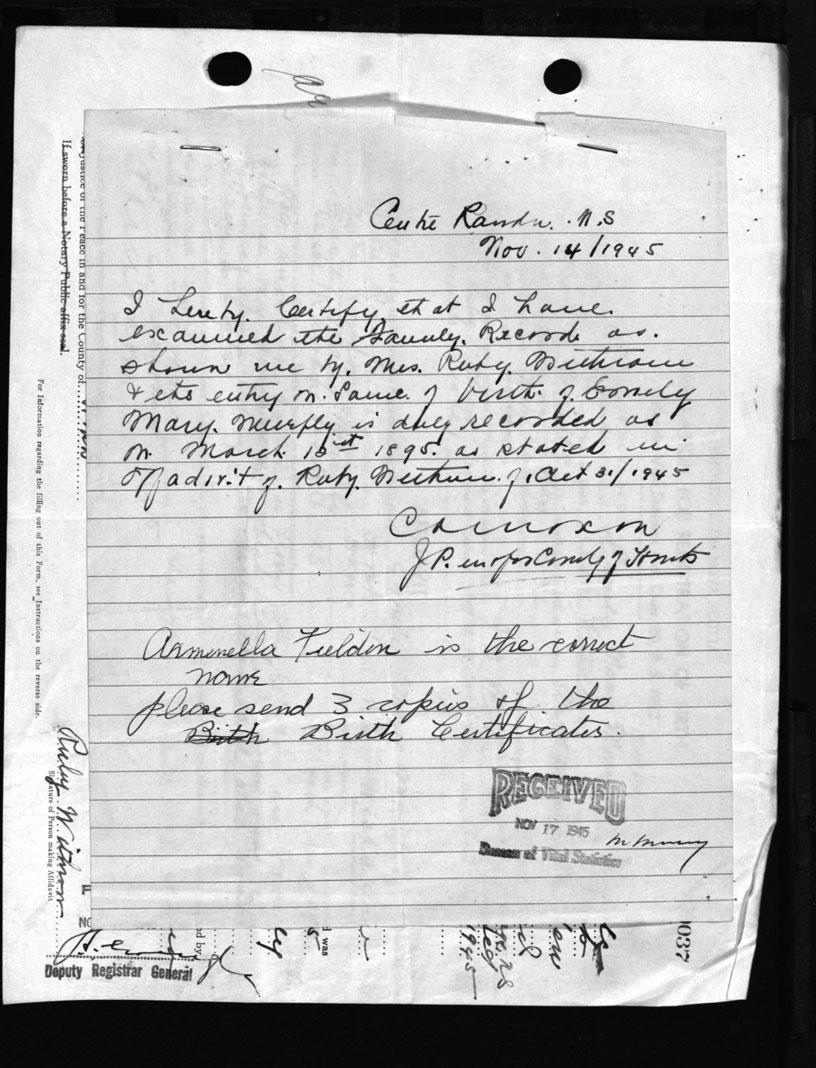 Centre Rawdon. N.S
Nov. 14/1945
I hereby Certify that I have
examined the Family Records as
shown me by Mrs. Ruby
& the entry on Same of birth of
Mary is duly recorded as
on March 1895 as stated in
of Ruby of Oct 31/1945
J.P. in & for County of Hants
Armenella Fieldon is the correct
name
please send 3 copies of the
Birth Birth Certificates.
RECEIVED
NOV 17 1945
Bureau of Vital Statistics
of the Peace in and for the County of
If sworn before a Notary Public affix seal.
For Information regarding the filling out of this Form, see Instructions on the reverse side.
Ruby
Signature of Person making Affidavit
Deputy Registrar General
nd by
was
1945
0037